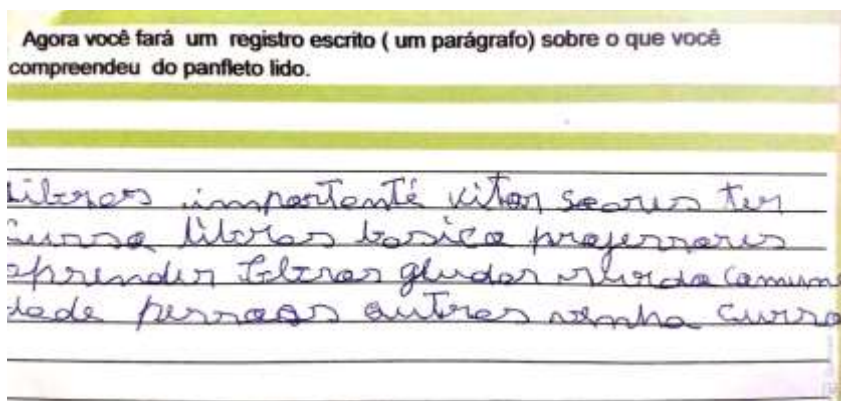 Agora você fará um registro escrito ( um parágrafo) sobre o que você
compreendeu do panfleto lido.
Libras importante vitor soares ter
Curso libras basica professores
aprender Libras surda comuni
dade pessoas outras venha Curso